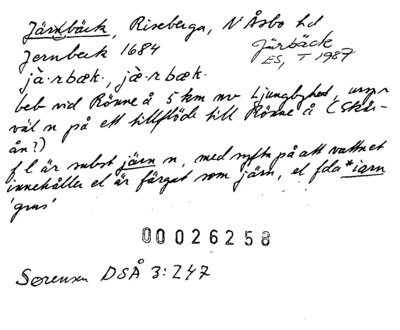 Järnbäck, Riseberga, N Åsbo hd
Jernbeck 1684
Järbäck
ES, T 1987
jà·rbæk, jæ̀·rbæk.
beb vid Rönne å 5 km nv Ljungbyhed, urspr
väl n på ett tillflöde till Rönne å (Skår-
ån?)
f l är subst järn n, med syftn på att vattnet
innehåller el är färgat som järn, el fda *iarn
'grus'
00026258
Sørensen DSÅ 3:247